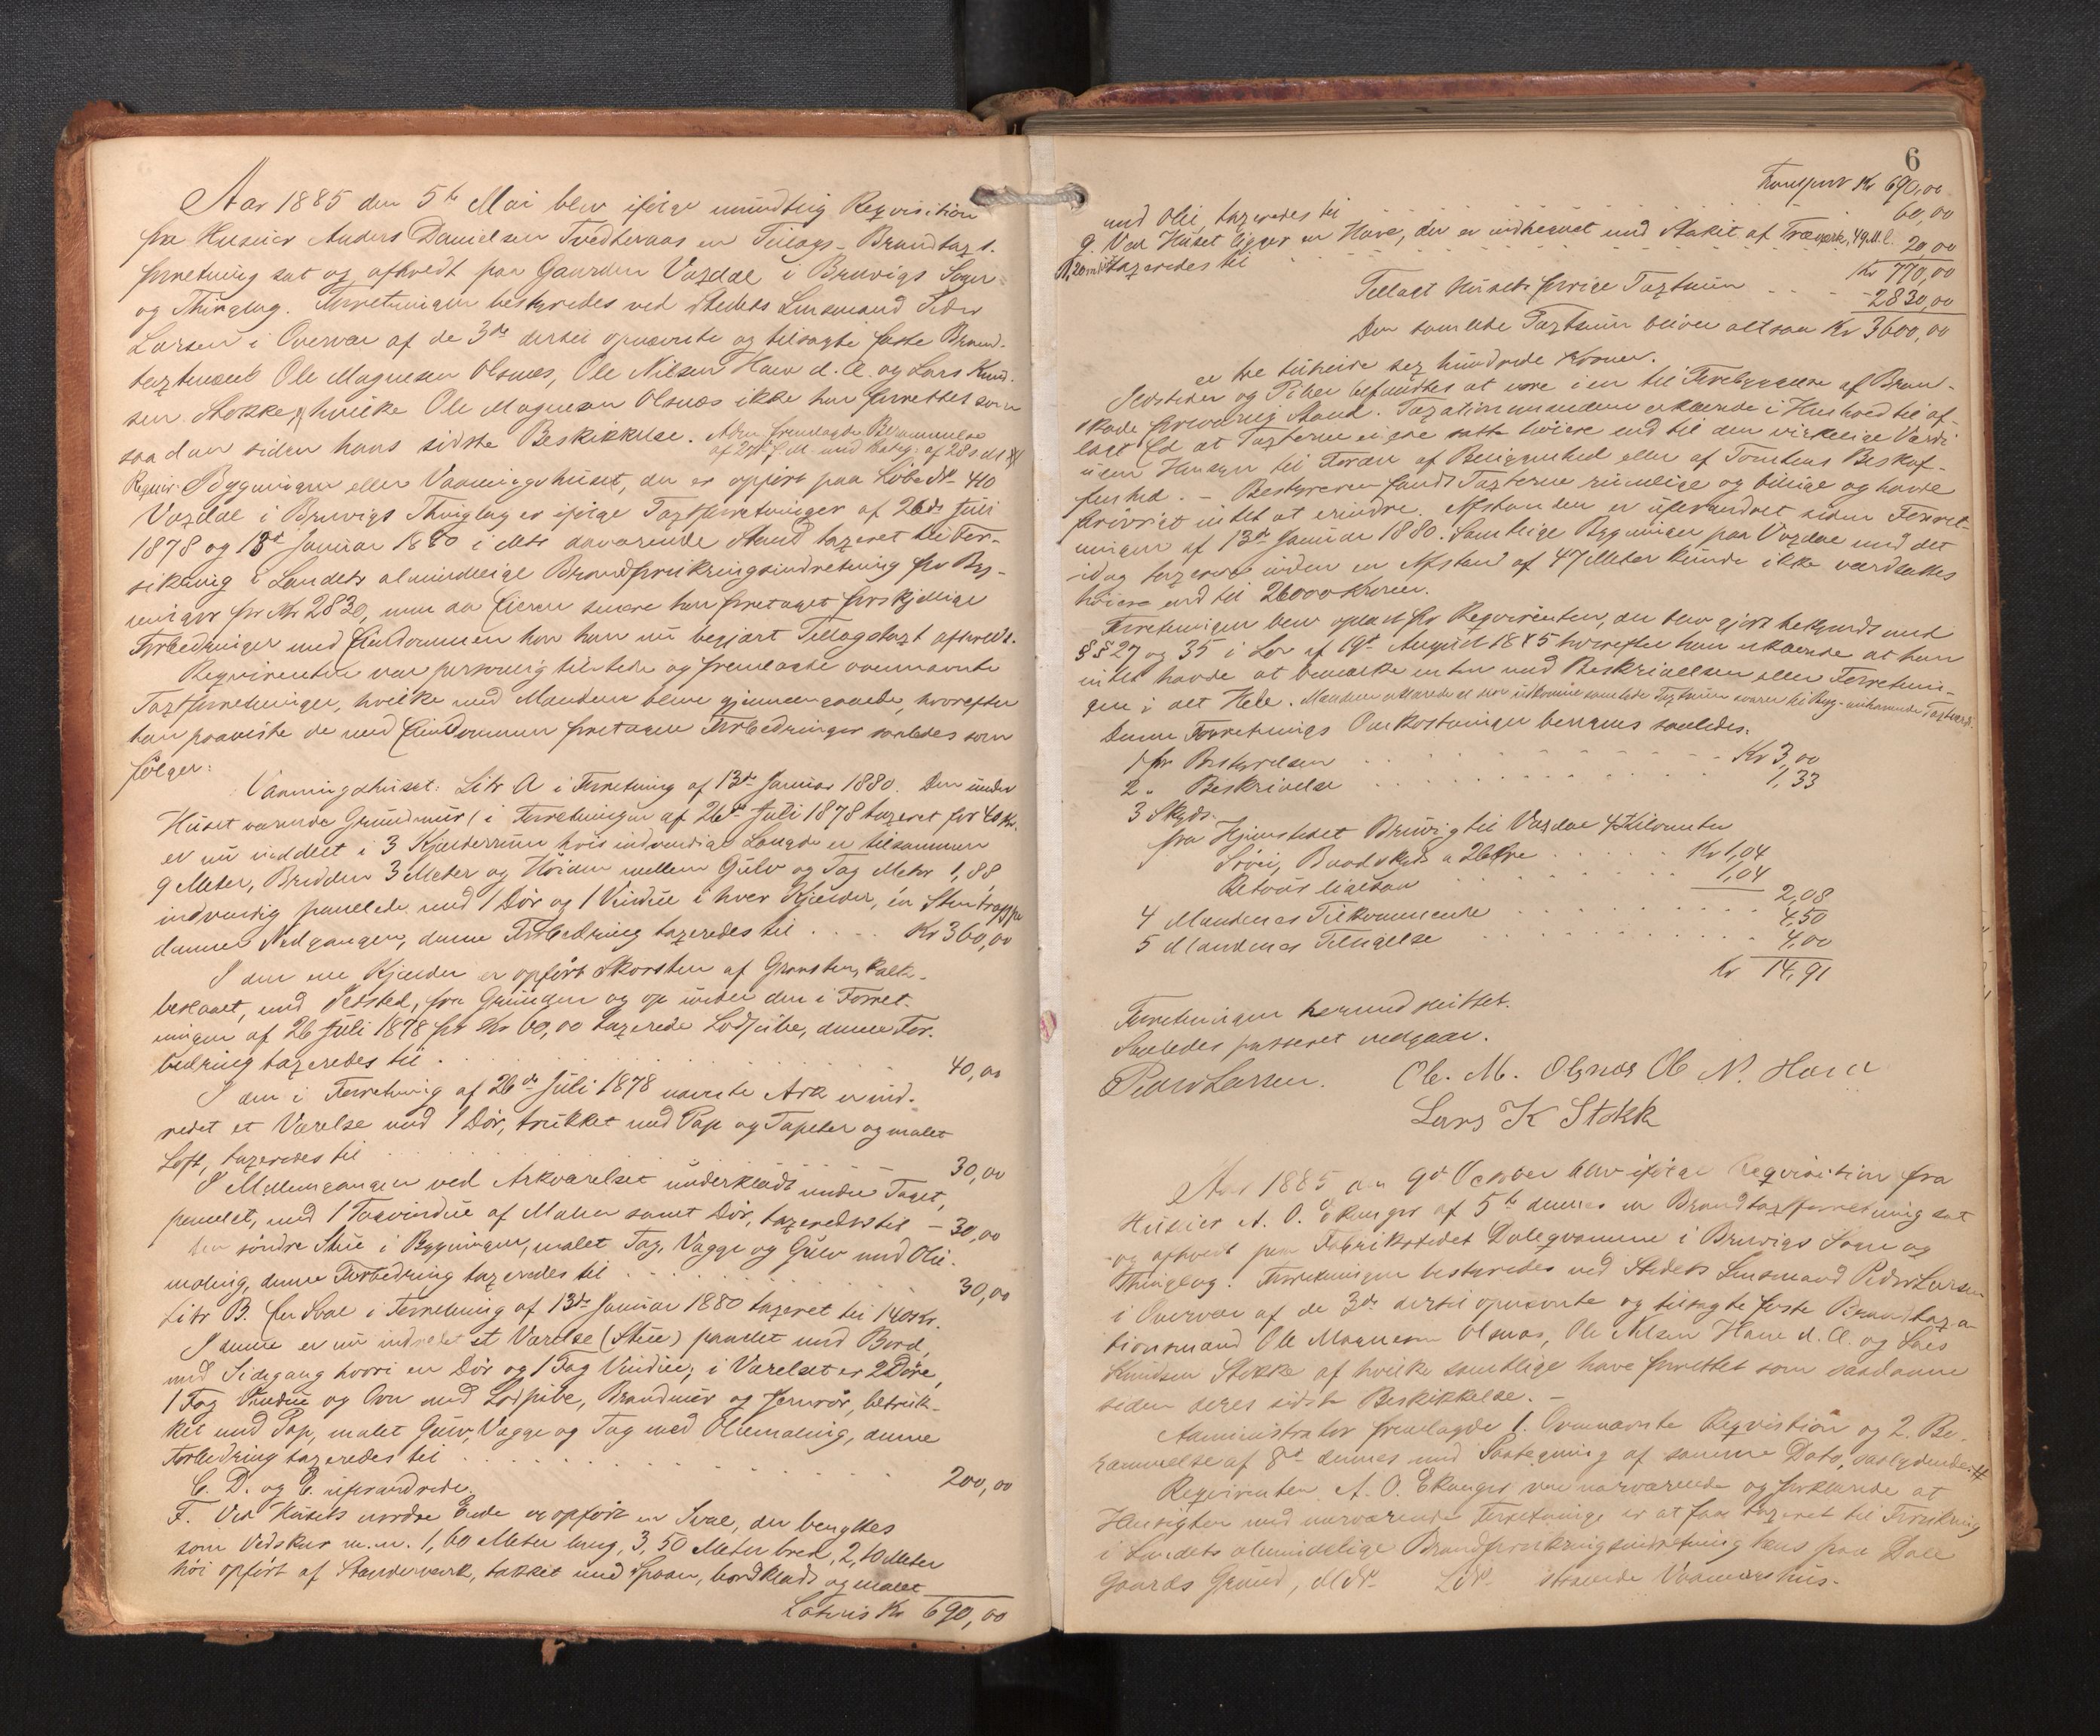 Aar 1885 den 5te Mai blev ifølge mundtlig Reqvisition
fra Huseier Anders Danielsen Tvedteraas en Tillægs-Brandtaxt-
forretning sat og afholdt paa Gaarden Vaxdal i Bruvigs Sogn
og Thinglag. Forretningen bestyredes ved Stedets Lensmand Peder
Larsen i Overvær af de 3de dertil opnævnte og tilsagte faste Brand-
taxtmænd Ole Magnesen Olsnæs, Ole Nilsen Have d. Æ. og Lars Knud-
sen Stokke, hvilke Ole Magnesen Olsnæs ikke har forrettet som
saadan siden hans sidste Beskikkelse. Adm. fremlagde Berammelse
af 27de f. M. med Paategn. af 28 s. M.
Reqvir. Bygningen eller Vaaningshuset, der er opført paa Løbe No 410
Vaxdal i Bruvigs Thinglag er ifølge Taxtforretninger af 26de Juli
1878 og 13de Januar 1880 i dets davarende Stand taxeret til For-
sikring i Landets almindelige Brandforsikringsindretning for Byg-
ninger for Kr 2830, men da Eieren senere har foretaget forskjellige
Forbedringer med Eiendommen har han nu begjært Tillægstaxt afholdt.
Reqvirenten var personlig tilstede og fremlagde ovennævnte
Taxtforretninger, hvilke med Mændene blev gjennemgaaede, hvorefter
han paaviste de med Eiendommen foretagne Forbedringer saaledes som
følger:
Vaaningshuset: Litr A i Forretning af 13de Januar 1880. Den under
Huset værende Grundmur (i Forretningen af 26de Juli 1878 taxeret for 40 Kr.
er nu inddelt i 3 Kjælderrum hvis indvendige Længde er tilsammen
9 Meter, Bredden 3 Meter og Høiden mellem Gulv og Tag Meter 1,88
indvendig panelede med 1 Dør og 1 Vindue i hver Kjælder, en Stentrappe
danner Nedgangen, denne Forbedring taxeredes til . . . . Kr 360,00
I den ene Kjælder er opført Skorsten af Graasten, kalk-
beslaaet, med Ildsted, fra Grunden og op under den i Forret-
ningen af 26 Juli 1878 for Kr 60,00 taxerede Lodpibe, denne For-
bedring taxeredes til . . . . 40,00
I den i Forretning af 26de Juli 1878 nævnte Ark er ind-
redet et Værelse med 1 Dør, trukket med Pap og Tapeter og malet
Loft, taxeredes til . . . . 30,00
I Mellemgangen ved Arkværelset underklædt under Taget,
panelet, med 1 Tagvindue af Malm samt Dør, taxeredes til - 30,00
Den søndre Stue i Bygningen, malet Tag, Vægge og Gulv med Olie-
maling, denne Forbedring taxeredes til . . . . 30,00
Litr B. En Sval i Forretning af 13de Januar 1880 taxeret til 140 Kr.
I denne er nu indredet et Værelse (Stue) panelet med Bord,
med Sidegang hvori en Dør og 1 Fag Vindue; i Værelset er 2 Døre,
1 Fag Vindue og Ovn med Lodpibe, Brandmur og Jernrør, betruk-
ket med Pap, malet Gulv, Vægge og Tag med Oliemaling, denne
Forbedring taxeredes til . . . . 200,00
C. D. og E. uforandrede.
F. Ved Husets nordre Ende er opført en Sval, der benyttes
som Vedskur m.m. 1,60 Meter lang, 3,50 Meter bred, 2,10 Meter
høi opført af Standerværk, tækket med Spaan, bordklædt og malet
Lateris Kr 690,00
6
Transport Kr 690,00
med Olie, taxeredes til . . . . 60,00
g. Ved Huset ligger en Have, der er indhegnet med Stakit af Træværk, 49 M. l.
1,20 m. høit taxeredes til . . . . 20,00
Kr 770,00
Tillagt Husets forrige Taxtsum . . . - 2830,00
Den samlede Taxtsum bliver altsaa Kr 3600,00
er tre tusinde sex hundrede Kroner.
Ildsteder og Piber befandtes at være i en til Forebyggelse af Brand-
skade forsvarlig Stand. Taxationsmændene erklærede i Henhold til af-
lagt Ed at Taxterne ei ere satte høiere end til den virkelige Værdi
uden Hensyn til Fordel af Beliggenhed eller af Tomtens Beskaf-
fenhed. – Bestyreren fandt Taxterne rimelige og billige og havde
forøvrigt intet at erindre. Afstanden er uforandret siden Forret-
ningen af 13de Januar 1880. Samtlige Bygninger paa Vaxdal med det
idag taxerede inden en Afstand af 47 Meter kunde ikke værdsættes
høiere end til 26000 Kroner.
Forretningen blev oplæst for Reqvirenten, der blev gjort bekjendt med
§§ 27 og 35 i Lov af 19de August 1845 hvorefter han erklærede at han
intet havde at bemærke enten ved Beskrivelsen eller Forretnin-
gen i det Hele. Mændene erklærede at den udkomne samlede Taxtsum svarer til Byg-
Denne Forretnings Omkostninger beregnes saaledes:
1 for Bestyrelsen . . . . Kr 3,00
2 " Beskrivelse . . . . 1,33
3 Skyds
fra Hjemstedet Bruvig til Vaxdal 4 Kilometer
Søvei, Baadskyds a 26 Øre . . . . Kr 1,04
Retour ligesaa . . . . 1,04
2,08
4 Mændenes Tilkommende . . . . 4,50
5 Mændenes Tilsigelse . . . . 4,00
Kr 14,91
Forretningen hermed sluttet.
Saaledes passeret vedgaar.
Peder Larsen. Ole. M. Olsnæs Ole N. Have
Lars K Stokk
Aar 1885 den 9de October blev ifølge Reqvisition fra
Huseier A. O. Ekanger af 5te dennes en Brandtaxtforretning sat
og afholdt paa Fabrikstedet Dalegvamme i Bruvigs Sogn og
Thinglag. Forretningen bestyredes ved Stedets Lensmand Peder Larsen
i Overvær af de 3de dertil opnævnte og tilsagte faste Brandtaxa-
tionsmænd Ole Magnesen Olsnæs, Ole Nilsen Have d. Æ. og Lars
Knudsen Stokke af hvilke samtlige have forrettet som saadanne
siden deres sidste Beskikkelse. –
Administrator fremlagde 1. Ovennævnte Reqvisition og 2. Be-
rammelse af 8de dennes med Paategning af samme Dato, saalydende:
Reqvirenten A. O. Ekanger var nærværende og forklarede at
Hensigten med nærværende Forretninge er at faa taxeret til Forsikring
i Landets almindelige Brandforsikringsindretning hans paa Dale
Gaards Grund, M No L No staaende Vaaningshus.